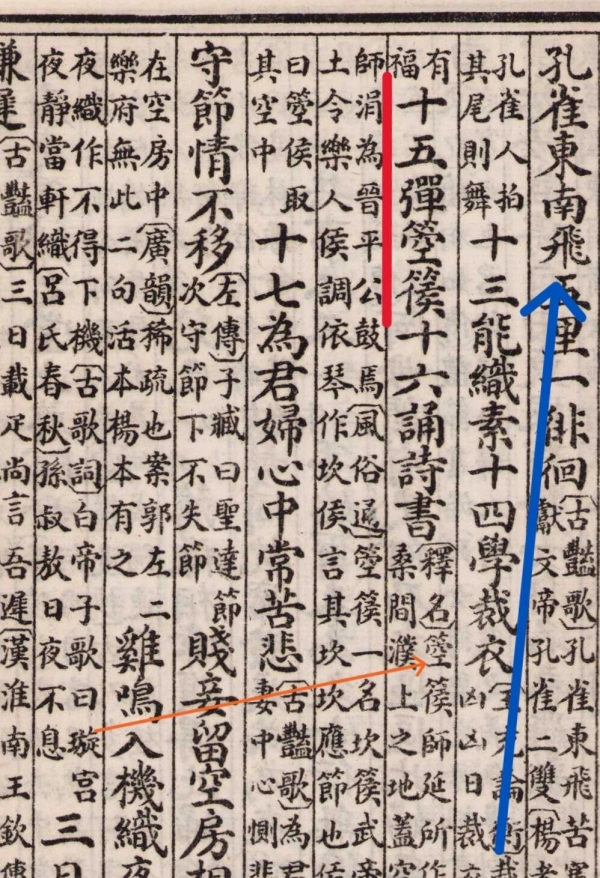 孔雀東南飛五里一徘徊
〔古豔歌〕孔雀東飛苦寒
獻文帝孔雀二雙〔楊孝
孔雀人拍
其尾則舞
十三能織素十四學裁衣
〔王充論衡〕裁
凶凶日裁衣
有
福
十五彈箜篌十六誦詩書
〔釋名〕箜篌師延所作
桑間濮上之地蓋空
師涓為晉平公鼓焉〔風俗通〕箜篌一名坎篌武帝
土令樂人侯調依琴作坎侯言其坎坎應節也侯
曰箜侯取
其空中
十七為君婦心中常苦悲
〔古豔歌〕為君
妻中心惻悲
守節情不移
〔左傳〕子臧曰聖達節
次守節下不失節
賤妾留空房相
在空房中〔廣韻〕稀疏也案郭左二
樂府無此二句活本楊本有之
雞鳴入機織夜
夜織作不得下機〔古歌詞〕白帝子歌曰璇宮
夜靜當軒織〔呂氏春秋〕孫叔敖日夜不息
三日
遲
〔古豔歌〕三日載疋尚言吾遲〔漢淮南王欽傳